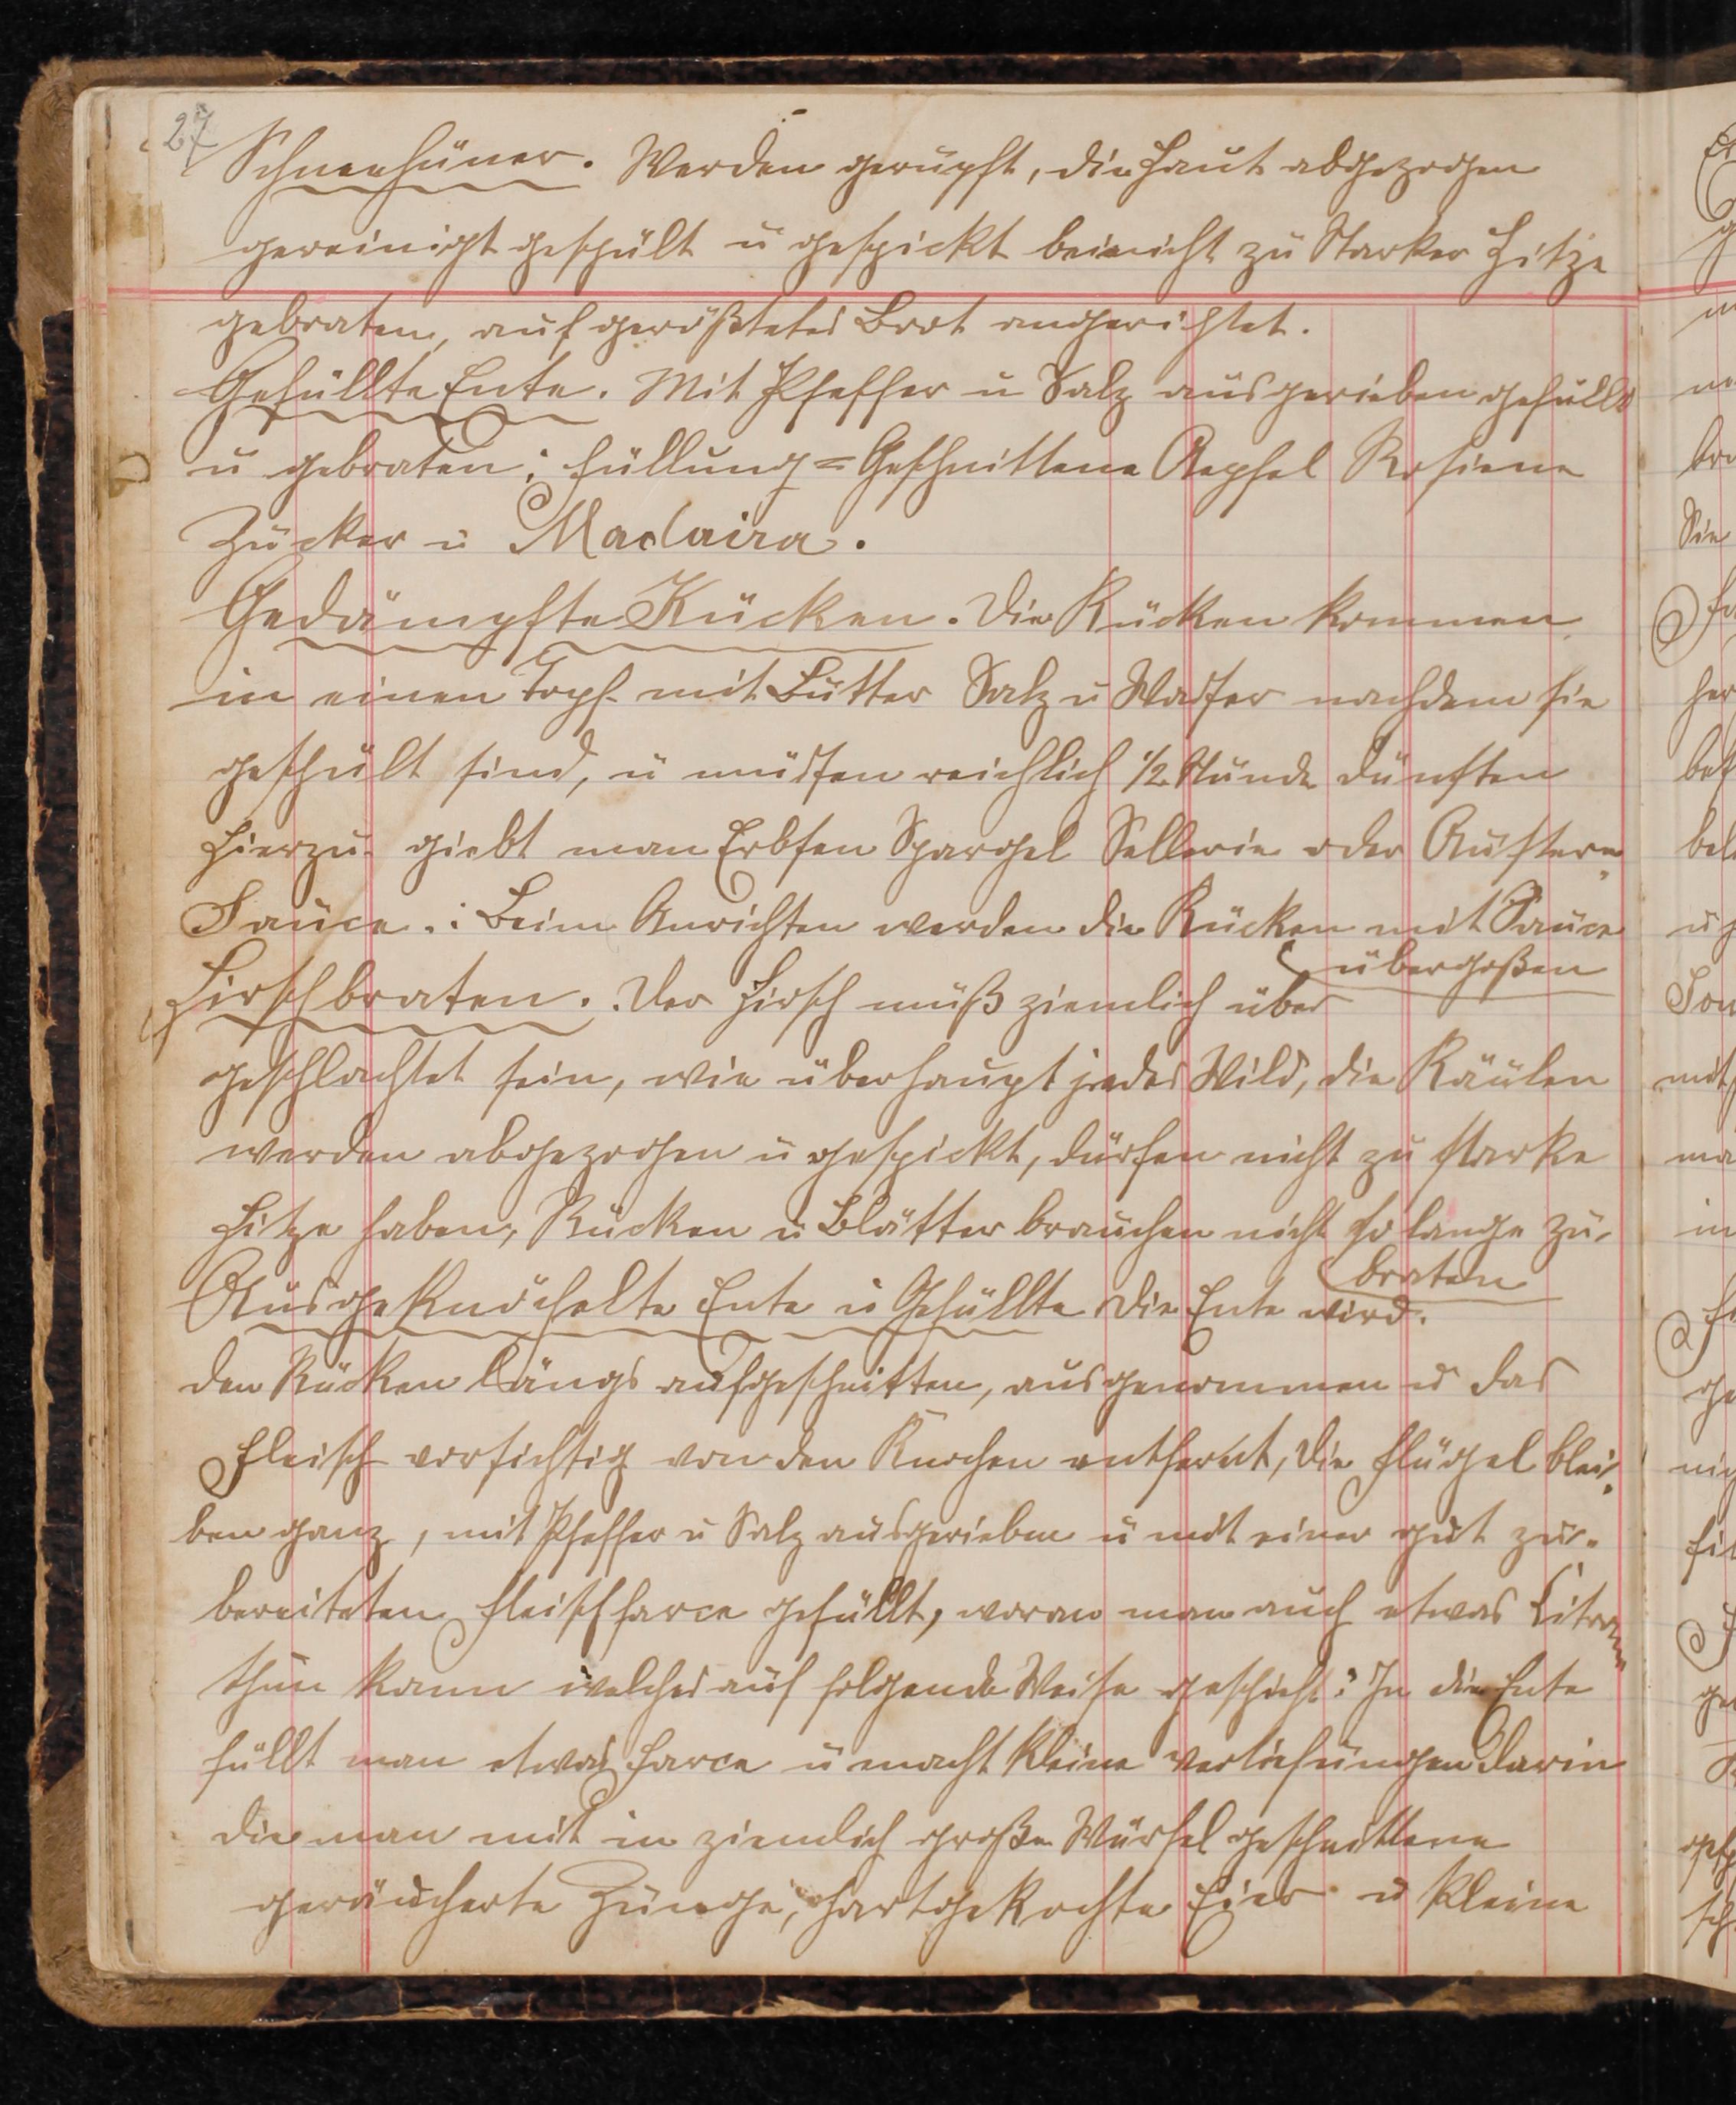 27
Schneehüner. Werden gerupft, die Haut abgezogen
gereinigt gespült u gespickt bei nicht zu Starker Hitze
gebraten, auf geröstetes Brot angerichtet.
Gefüllte Ente. Mit Pfeffer u Salz ausgerieben gefüllt
u gebraten; Füllung = Geschnittene Aepfel Rosiene
Zucker u Madaira.
Gedämpfte Kücken. Die Kücken kommen
in einen Topf mit Butter Salz u Wasser nachdem sie
gespült sind, u müssen reichlich 1/2 Stunde dünsten
Hierzu giebt man Erbsen Spargel Sellerie oder Austern
Sauce.: Beim Anrichten werden die Kücken mit Sauce
übergoßen
Hirschbraten. Der Hirsch muß ziemlich über
geschlachtet sein, wie überhaupt jedes Wild, die Käulen
werden abgezogen u gespickt, dürfen nicht zu starke
Hitze haben, Rücken u Blätter brauchen nicht so lange zu
braten
Ausgeknöchelte Ente u Gefüllte Die Ente wird.
den Rücken längs aufgeschnitten, ausgenommen u das
Fleisch vorsichtig von den Knochen entfernt, die Flügel blei,
ben ganz, mit Pfeffer u Salz ausgerieben u mit einer gut zu-
bereiteten Fleischfarce gefüllt, woran man auch etwas Citron
thun kann welches auf folgende Weise geschieht: In die Ente
füllt man etwas Farce u macht kleine Vertiefungen darin
die man mit in ziemlich große Würfel geschnittene
geräucherte Zunge, hartgekochte Eier u kleine